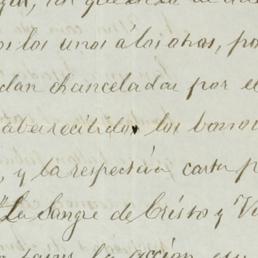 os los unos á los otros, po
dan chanceladas por el
aber recibido los bonos
, y la respectiva carta p
"La Sangre de Cristo y V
la acción